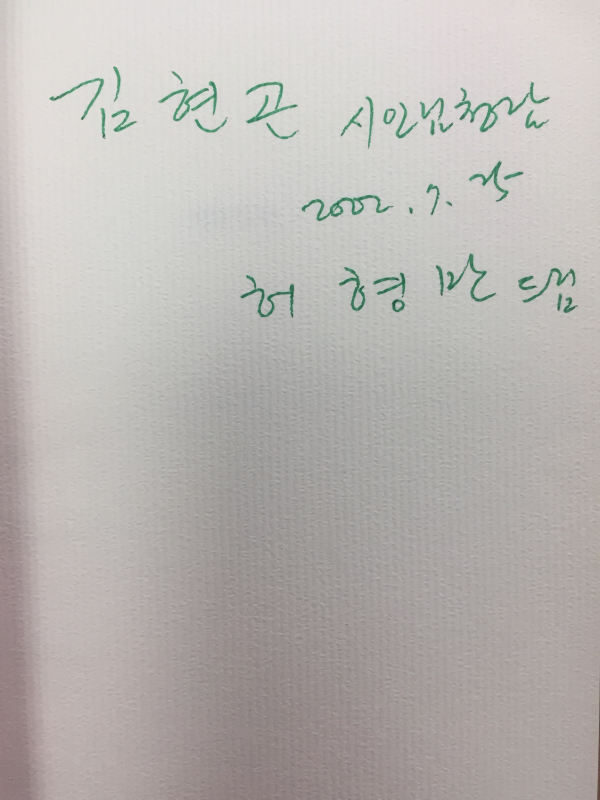 김현곤 시인님 청람
2002. 7. 25
허 형만 드림